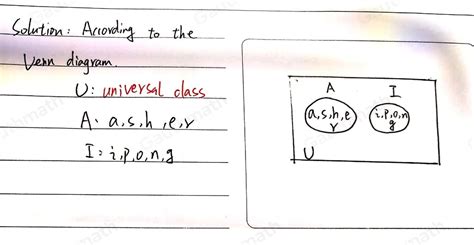 Solution: According to the
Venn diagram.
U: universal class
A: a,s,h,e,r
I: i,p,o,n,g
A I
a,s,h,e
r
i,p,o,n
g
U